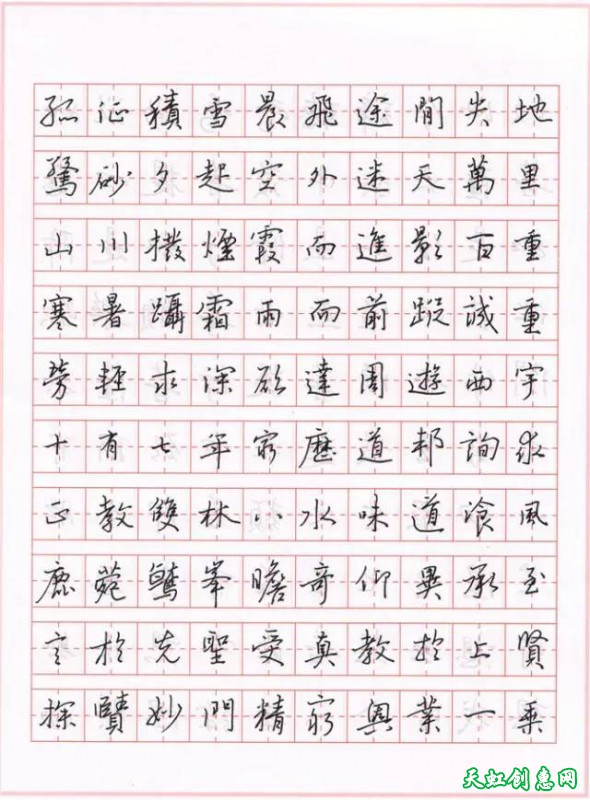 孤征積雪晨飛途間失地
驚砂夕起空外迷天萬里
山川撥煙霞而進影百重
寒暑躡霜雨而前蹤誠重
勞輕求深欲達周遊西宇
十有七年窮歷道邦詢求
正教雙林八水味道飡風
鹿菀鷲峯瞻奇仰異承至
言於先聖受真教於上賢
探賾妙門精窮奧業一乘
天虹创意网